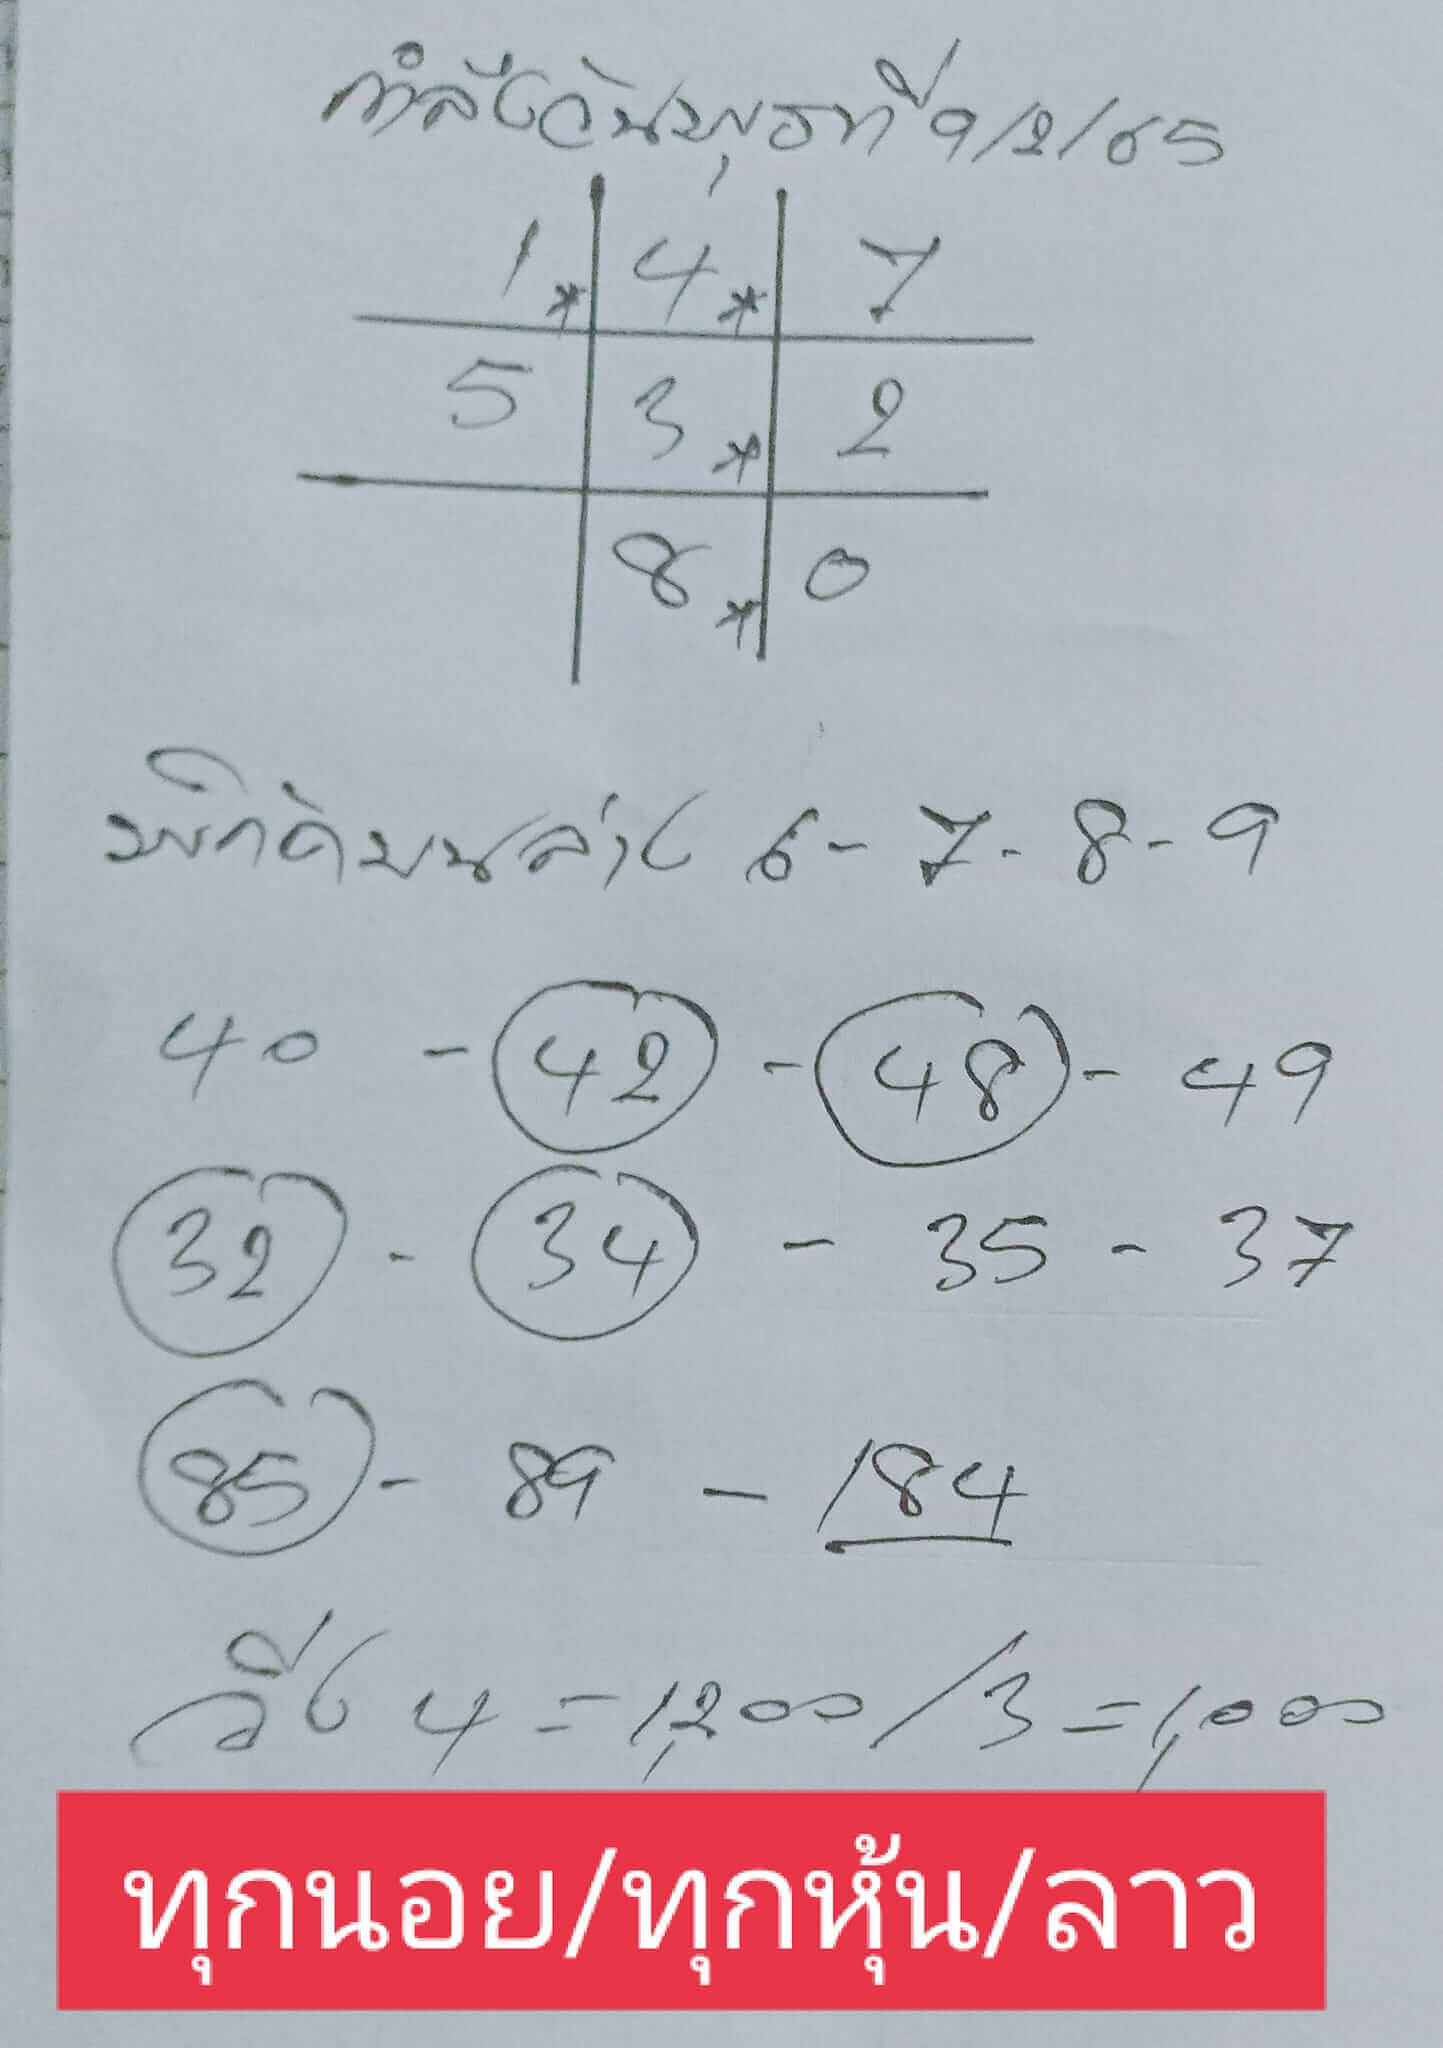 กำลังวันพุธที่ 9/2/65
1* 4* 7
5 3* 2
8* 0
พิกัดบนล่าง 6-7-8-9
40 - 42 - 48 - 49
32 - 34 - 35 - 37
85 - 89 - 184
วิ่ง 4 = 1,200 / 3 = 1,000
ทุกนอย/ทุกหุ้น/ลาว